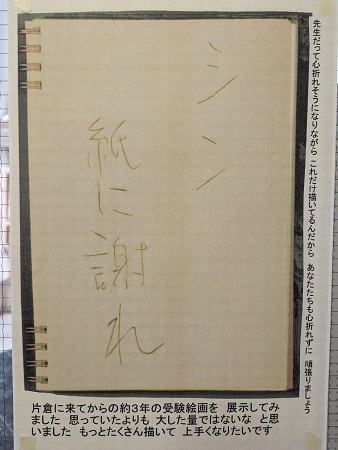 先生だって心折れそうになりながら これだけ描いてるんだから あなたたちも心折れずに 頑張りましょう
シン
紙に謝れ
片倉に来てからの約3年の受験絵画を 展示してみ
ました 思っていたよりも 大した量ではないな と思
いました もっとたくさん描いて 上手くなりたいです